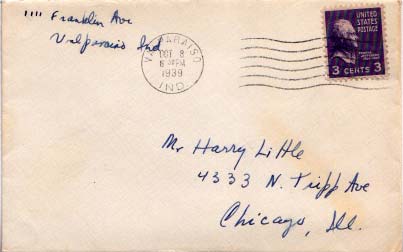 1111 Franklin Ave
Valparaiso Ind
VALPARAISO
OCT 8
6 PM
1939
IND.
UNITED
STATES
POSTAGE
3 CENTS 3
Mr Harry Little
4333 N. Tripp Ave
Chicago, Ill.